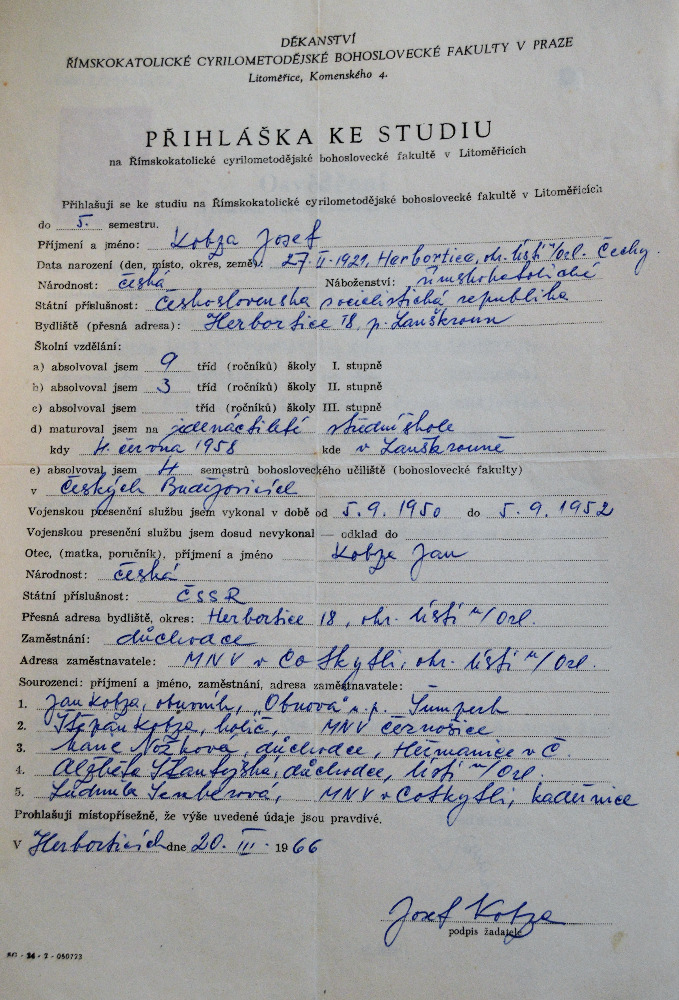 DĚKANSTVÍ
ŘÍMSKOKATOLICKÉ CYRILOMETODĚJSKÉ BOHOSLOVECKÉ FAKULTY V PRAZE
Litoměřice, Komenského 4.
PŘIHLÁŠKA KE STUDIU
na Římskokatolické cyrilometodějské bohoslovecké fakultě v Litoměřicích
Přihlašuji se ke studiu na Římskokatolické cyrilometodějské bohoslovecké fakultě v Litoměřicích
do 5. semestru.
Příjmení a jméno: Kobza Josef
Datum narození (den, místo, okres, země): 27. II. 1921, Herbortice, okr. Ústí n/Orl. Čechy.
Národnost: česká Náboženství: římskokatolické
Státní příslušnost: Československá socialistická republika
Bydliště (přesná adresa): Herbortice 18, p. Lanškroun
Školní vzdělání:
a) absolvoval jsem 9 tříd (ročníků) školy I. stupně
b) absolvoval jsem 3 tříd (ročníků) školy II. stupně
c) absolvoval jsem tříd (ročníků) školy III. stupně
d) maturoval jsem na jedenáctileté střední škole
kdy 4. června 1958 kde v Lanškrouně
e) absolvoval jsem 4 semestrů bohosloveckého učiliště (bohoslovecké fakulty)
v Českých Budějovicích
Vojenskou presenční službu jsem vykonal v době od 5. 9. 1950 do 5. 9. 1952
Vojenskou presenční službu jsem dosud nevykonal — odklad do
Otec, (matka, poručník), příjmení a jméno Kobza Jan
Národnost: česká
Státní příslušnost: ČSSR
Přesná adresa bydliště, okres: Herbortice 18, okr. Ústí n/Orl.
Zaměstnání: důchodce
Adresa zaměstnavatele: MNV v Cotkytli, okr. Ústí n/Orl.
Sourozenci: příjmení a jméno, zaměstnání, adresa zaměstnavatele:
1. Jan Kobza, obuvník, „Obnova" n. p. Šumperk
2. Štěpán Kobza, holič, MNV Černošice
3. Nožková, důchodce, Heřmanice v Č.
4. Alžběta důchodce, Ústí n/Orl.
5. Ludmila MNV v Cotkytli, kadeřnice
Prohlašuji místopřísežně, že výše uvedené údaje jsou pravdivé.
V Herborticích dne 20. III. 1966
Josef Kobza
podpis žadatele
24 - 7 - 050773